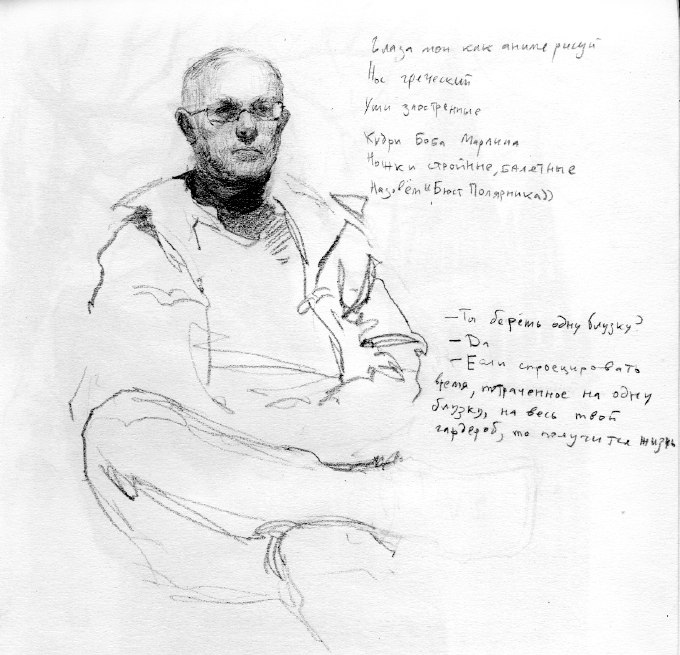 Глаза мои как аниме рисуй
Нос греческий
Уши заостренные
Кудри Боба Марлина
Ножки стройные, балетные
Назовём "Бюст Полярника»
– Ты берёшь одну блузку?
– Да
– Если спроецировать
время, потраченное на одну
блузку, на весь твой
гардероб, то получится жизнь